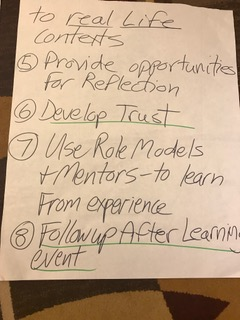 to real Life
contexts
⑤ Provide opportunities
for Reflection
⑥ Develop Trust
⑦ Use Role Models
+ Mentors - to learn
From experience
⑧ Followup After Learning
event